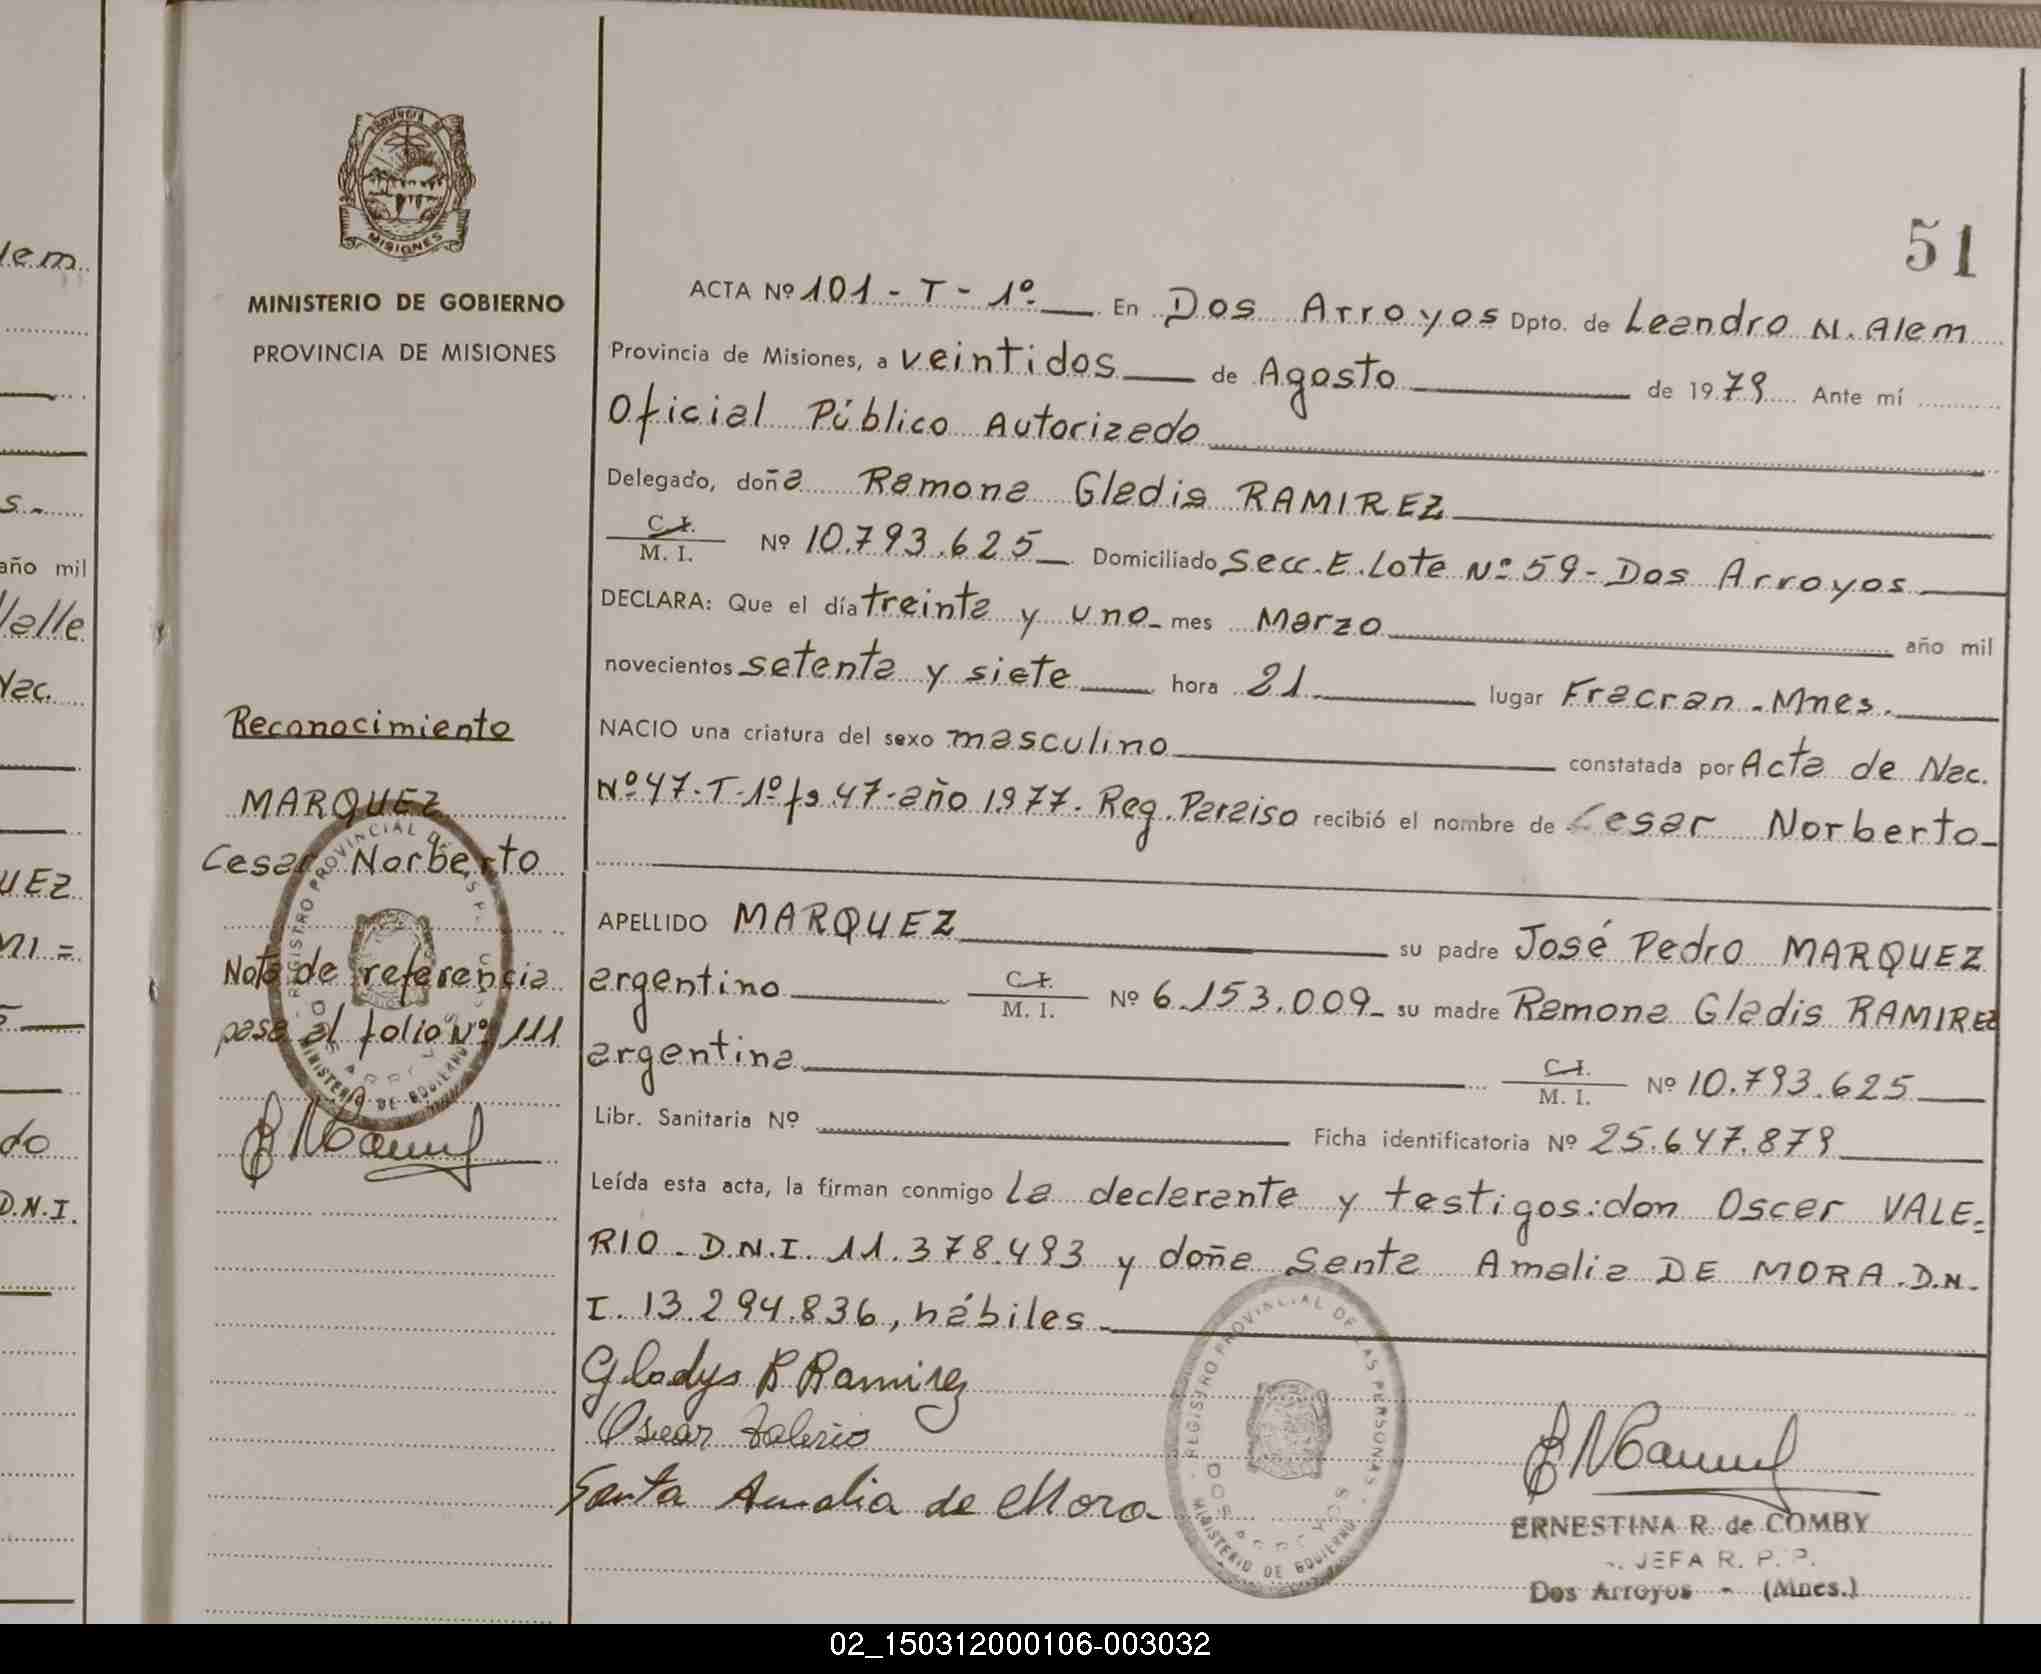 lem
s.-
año mil
Valle
Nac.
UEZ
MI =
do
D.N.I.
PROVINCIA DE
MISIONES
MINISTERIO DE GOBIERNO
PROVINCIA DE MISIONES
51
ACTA Nº 101 - T - 1º. En Dos Arroyos Dpto. de Leandro N. Alem
Provincia de Misiones, a veintidos de Agosto de 1979 Ante mí
Oficial Público Autorizado
Delegado, doña Ramona Gladis RAMIREZ
C. I.
M. I. Nº 10.793.625 Domiciliado Secc. E. Lote Nº 59 - Dos Arroyos
DECLARA: Que el día treinta y uno mes Marzo año mil
novecientos setenta y siete hora 21 lugar Fracran - Mnes.
NACIO una criatura del sexo masculino constatada por Acta de Nac.
Nº 47 - T - 1º fs 47 - año 1977. Reg. Paraiso recibió el nombre de Cesar Norberto
APELLIDO MARQUEZ su padre José Pedro MARQUEZ
argentino C. I. M. I. Nº 6.153.009 su madre Ramona Gladis RAMIREZ
argentina C. I. M. I. Nº 10.793.625
Libr. Sanitaria Nº Ficha identificatoria Nº 25.647.879
Leída esta acta, la firman conmigo la declarante y testigos: don Oscar VALE=
RIO - D.N.I. 11.378.493 y doña Santa Amalia DE MORA. D.N.
I. 13.294.836, hábiles
Gladys R Ramirez
Oscar Valerio
Santa Amalia de Mora
REGISTRO PROVINCIAL DE LAS PERSONAS
DOS ARROYOS
MINISTERIO DE GOBIERNO
ERNESTINA R. de COMBY
JEFA R. P. P.
Dos Arroyos - (Mnes.)
Reconocimiento
MARQUEZ
Cesar Norberto
Nota de referencia
pasa al folio Nº 111
REGISTRO PROVINCIAL DE
DOS ARROYOS
MINISTERIO DE GOBIERNO
02_150312000106-003032